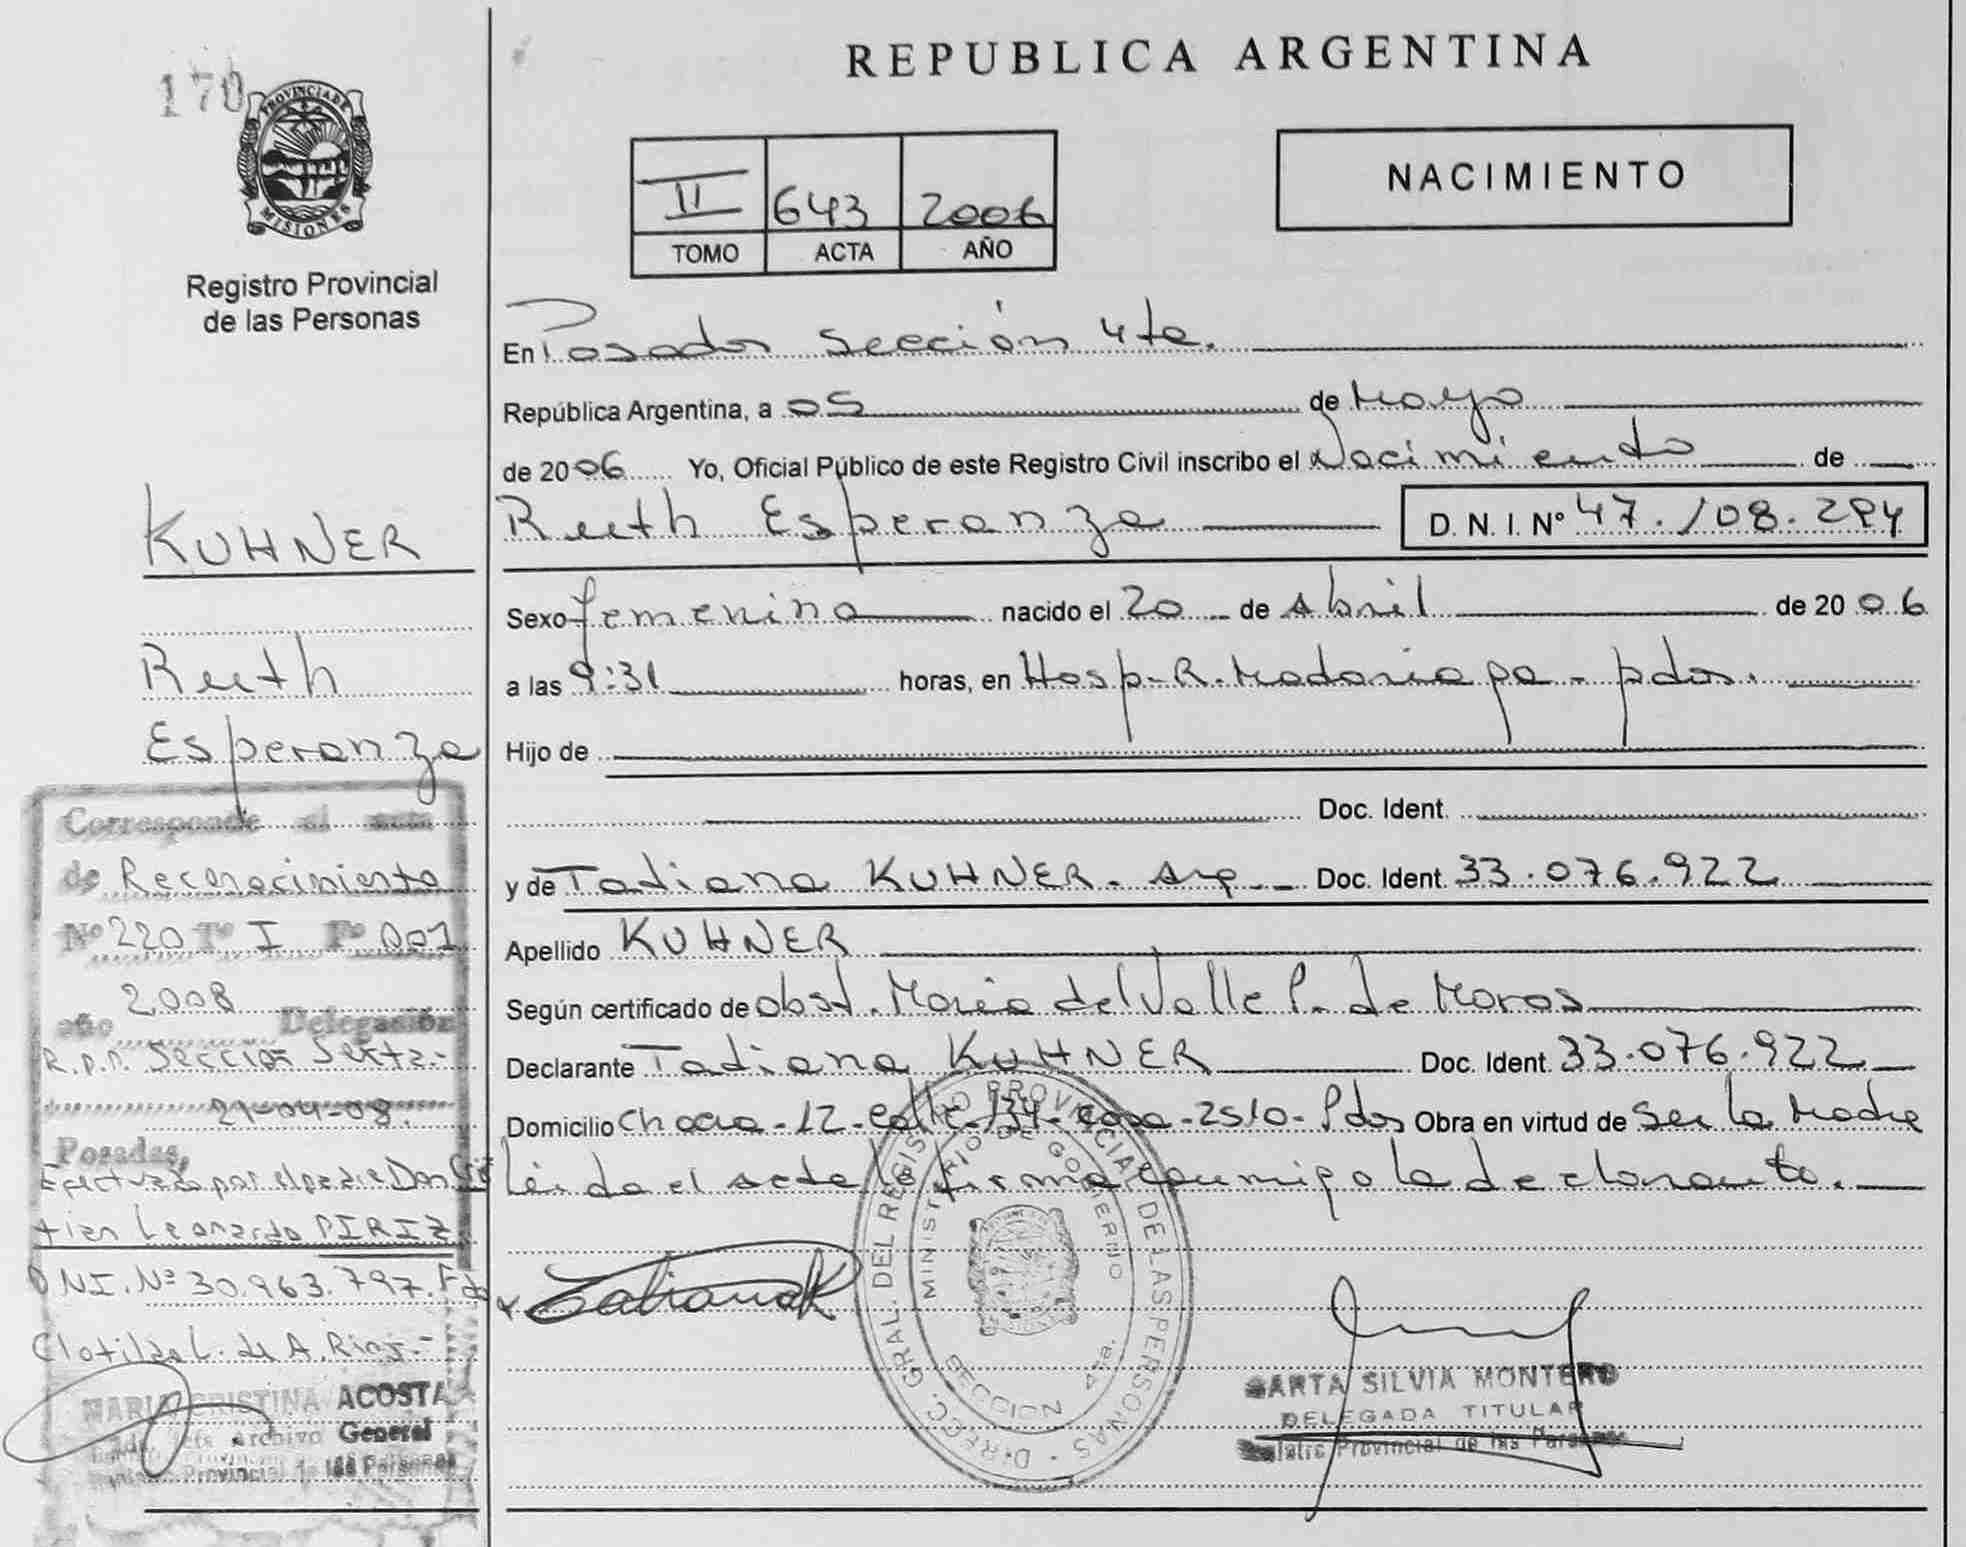 170
PROVINCIA DE
MISIONES
Registro Provincial
de las Personas
KUHNER
Ruth
Esperanza
Corresponde al acta
de Reconocimiento
Nº 220 Tº I Fº 001
año 2008 Delegación
R.P.P. Sección Sexta.-
21-04-08.
Posadas,
Efectuado por el padre Don
tian Leonardo PIRIZ
DNI. Nº 30.963.797. Fdo
Clotilde L. de A. Rios.-
MARIA CRISTINA ACOSTA
Jefe Archivo General
Provincial de las Personas
REPUBLICA ARGENTINA
II 643 2006
TOMO ACTA AÑO
NACIMIENTO
En Posadas Sección 4ta.
República Argentina, a 05 de Mayo
de 2006 Yo, Oficial Público de este Registro Civil inscribo el Nacimiento de
Ruth Esperanza D. N. I. Nº 47.108.294
Sexo femenino nacido el 20 de Abril de 2006
a las 9:31 horas, en Hosp. R. Madariaga - pdas.
Hijo de
Doc. Ident.
y de Tatiana KUHNER. Arg. Doc. Ident. 33.076.922
Apellido KUHNER
Según certificado de obst. Maria del Valle P. de Moros
Declarante Tatiana KUHNER Doc. Ident. 33.076.922
Domicilio Chacra-12-calle-134-casa-2510-Pdas Obra en virtud de ser la Madre
Leida el acta la firma conmigo la declarante.
TatianaK
DIREC. GRAL. DEL REGISTRO PROVINCIAL DE LAS PERSONAS
MINISTERIO DE GOBIERNO
SECCION 4ta.
SARTA SILVIA MONTERO
DELEGADA TITULAR
Registro Provincial de las Personas